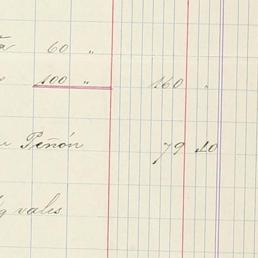 60 "
100 " 160 "
Peñón 79 40
vales